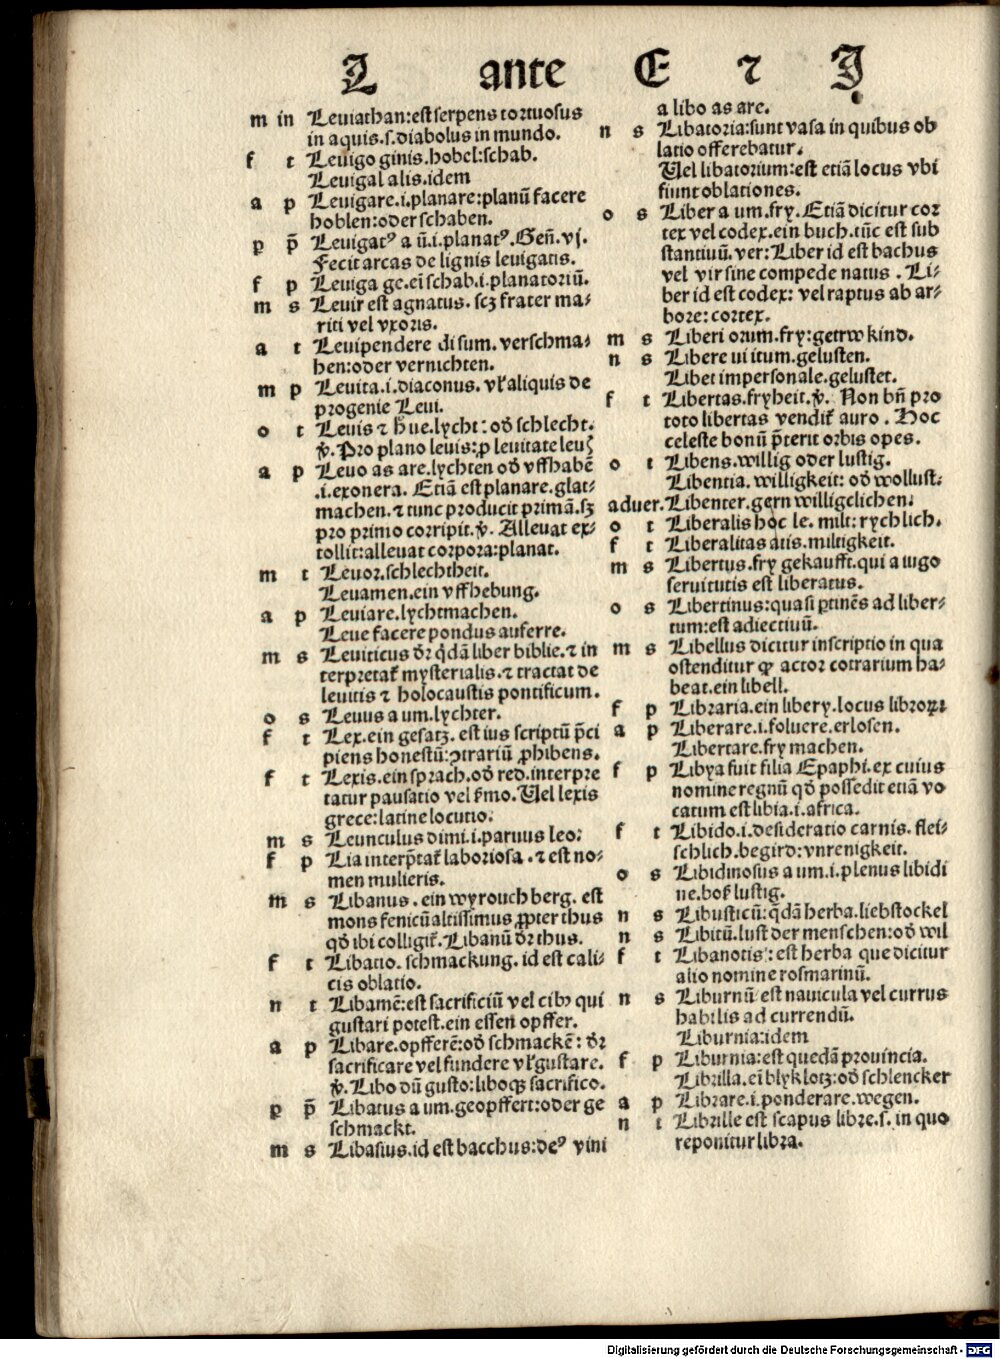 L ante E ⁊ I
m in Leuiathan:est serpens tortuosus
in aquis.s.diabolus in mundo.
f t Leuigo ginis.hobel:schab.
Leuigal alis.idem
a p Leuigare.i.planare:planū facere
hoblen:oder schaben.
p p̄ Leuigatꝰ a ū.i.planatꝰ.Geñ.vj.
Fecit arcas de lignis leuigatis.
f p Leuiga ge.eī schab.i.planatoriū.
m s Leuir est agnatus.scʒ frater ma⸗
riti vel vxoris.
a t Leuipendere di sum.verschma⸗
hen:oder vernichten.
m p Leuita.i.diaconus.vł aliquis de
progenie Leui.
o t Leuis ⁊ hue.lycht:oď schlecht.
v̄.Pro plano leuis:ꝓ leuitate leuꝭ
a p Leuo as are.lychten oď vffhabē
.i.exonera. Etiā est planare.glat⸗
machen.⁊ tunc producit primā.sʒ
pro primo corripit.v̄. Alleuat ex⸗
tollit:alleuat corpora:planat.
m t Leuor.schlechtheit.
Leuamen.ein vffhebung.
a p Leuiare.lychtmachen.
Leue facere pondus auferre.
m s Leuiticus ďr q̇dā liber biblie.⁊ in
terpretat᷑ mysterialis.⁊ tractat de
leuitis ⁊ holocaustis pontificum.
o s Leuus a um.lychter.
f t Lex.ein gesatʒ.est ius scriptū p̄ci
piens honestū:ꝯtrariū ꝓhibens.
f t Lexis.ein sprach.oď red.interpre
tatur pausatio vel ẜmo.Uel lexis
grece:latine locutio.
m s Leunculus dimi.i.paruus leo.
f p Lia interp̄tat᷑ laboriosa.⁊ est no⸗
men mulieris.
m s Libanus.ein wyrouch berg.est
mons fenicū altissimus ꝓpter thus
qď ibi colligit᷑.Libanū ďr thus.
f t Libatio.schmackung.id est cali⸗
cis oblatio.
n t Libamē:est sacrificiū vel cibꝰ qui
gustari potest.ein essen opffer.
a p Libare.opfferē:oď schmackē:ďr
sacrificare vel fundere vł gustare.
v̄.Libo dū gusto:liboqꝫ sacrifico.
p p̄ Libatus a um.geopffert:oder ge
schmackt.
m s Libasius.id est bacchus:deꝰ vini
a libo as are.
n s Libatoria:sunt vasa in quibus ob
latio offerebatur.
Uel libatorium:est etiā locus vbi
fiunt oblationes.
o s Liber a um.fry.Etiā dicitur cor
tex vel codex.ein buch.tūc est sub
stantiuū.ver:Liber id est bachus
vel vir sine compede natus. Li⸗
ber id est codex: vel raptus ab ar⸗
bore:cortex.
m s Liberi orum.fry:getrw kind.
n s Libere ui itum.gelusten.
Libet impersonale.gelustet.
f t Libertas.fryheit.v̄. Non bn̄ pro
toto libertas vendit᷑ auro. Hoc
celeste bonū p̄terit orbis opes.
o t Libens.willig oder lustig.
Libentia.willigkeit:oď wollust.
aduer. Libenter.gern willigclichen.
o t Liberalis hoc le.milt:rychlich.
f t Liberalitas atis.miltigkeit.
m s Libertus.fry gekaufft.qui a iugo
seruitutis est liberatus.
o s Libertinus:quasi ꝑtinēs ad liber⸗
tum:est adiectiuū.
m s Libellus dicitur inscriptio in qua
ostenditur ꝙ actor cōtrarium ha⸗
beat.ein libell.
f p Libraria.ein libery.locus libroꝝ.
a p Liberare.i.soluere.erlosen.
Libertare.fry machen.
f p Libya fuit filia Epaphi.ex cuius
nomine regnū qď possedit etiā vo
catum est libia.i.africa.
f t Libido.i.desideratio carnis.flei⸗
schlich.begird:vnrenigkeit.
o s Libidinosus a um.i.plenus libidi
ne.boß lustig.
n s Libusticū:q̇dā herba.liebstockel
n s Libitū.lust der menschen:oď wil
f t Libanotis:est herba que dicitur
alio nomine rosmarinū.
n s Liburnū est nauicula vel currus
habilis ad currendū.
Liburnia:idem
f p Liburnia:est quedā prouincia.
Librilla.eī blyklotʒ:oď schlencker
a p Librare.i.ponderare.wegen.
n t Librille est scapus libre.s.in quo
reponitur libra.
Digitalisierung gefördert durch die Deutsche Forschungsgemeinschaft - DFG